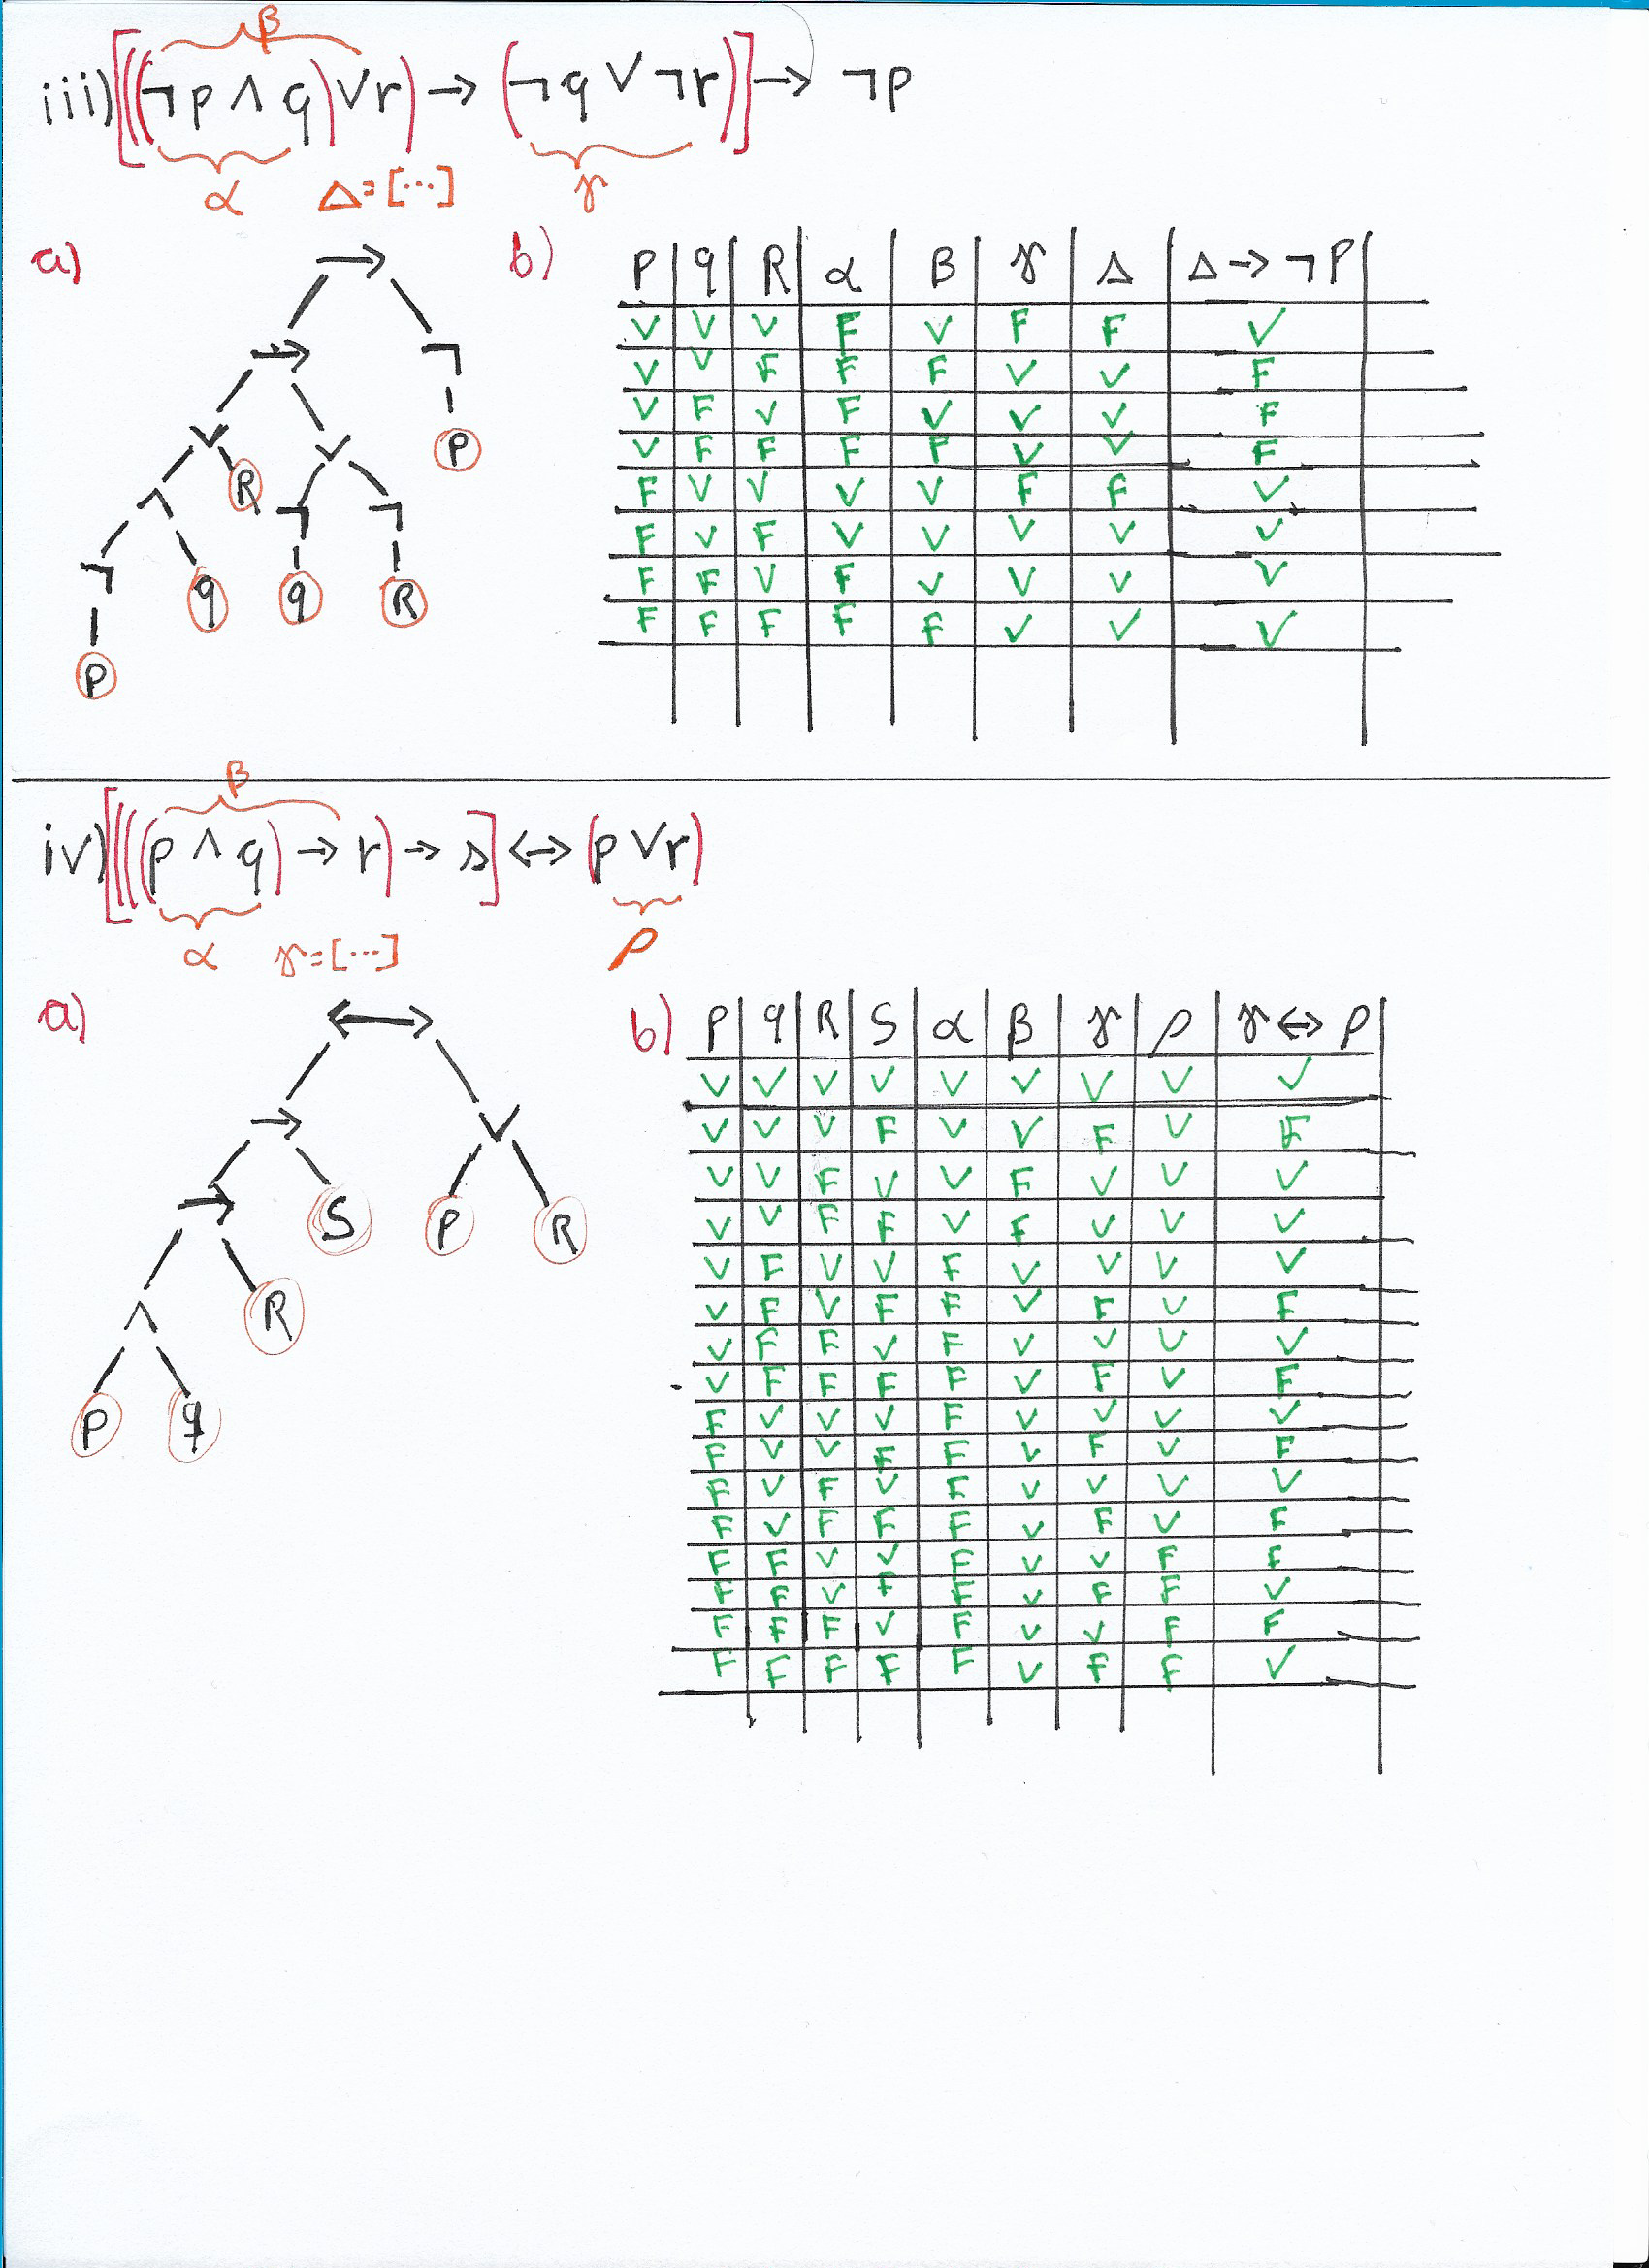 β
iii) [((¬p ∧ q) ∨ r) → (¬q ∨ ¬r)] → ¬p
α Δ=[...] γ
a)
→
→ ¬
∨ ∨ P
¬ R ¬ ¬
¬ q q R
P
b)
P q R α β γ Δ Δ → ¬P
V V V F V F F V
V V F F F V V F
V F V F V V V F
V F F F F V V F
F V V V V F F V
F V F V V V V V
F F V F V V V V
F F F F F V V V
β
iv) [(((p ∧ q) → r) → s] ↔ (p ∨ r)
α γ=[...] ρ
a)
↔
→ ∨
→ S P R
∧ R
P q
b)
P q R S α β γ ρ γ ↔ ρ
V V V V V V V V V
V V V F V V F V F
V V F V V F V V V
V V F F V F V V V
V F V V F V V V V
V F V F F V F V F
V F F V F V V V V
V F F F F V F V F
F V V V F V V V V
F V V F F V F V F
F V F V F V V V V
F V F F F V F V F
F F V V F V V F F
F F V F F V F F V
F F F V F V V F F
F F F F F V F F V